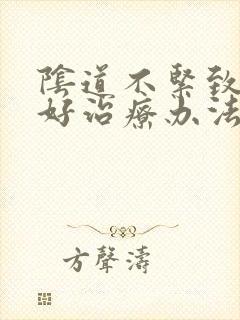 陰道不緊致
好治療办法
方聲濤